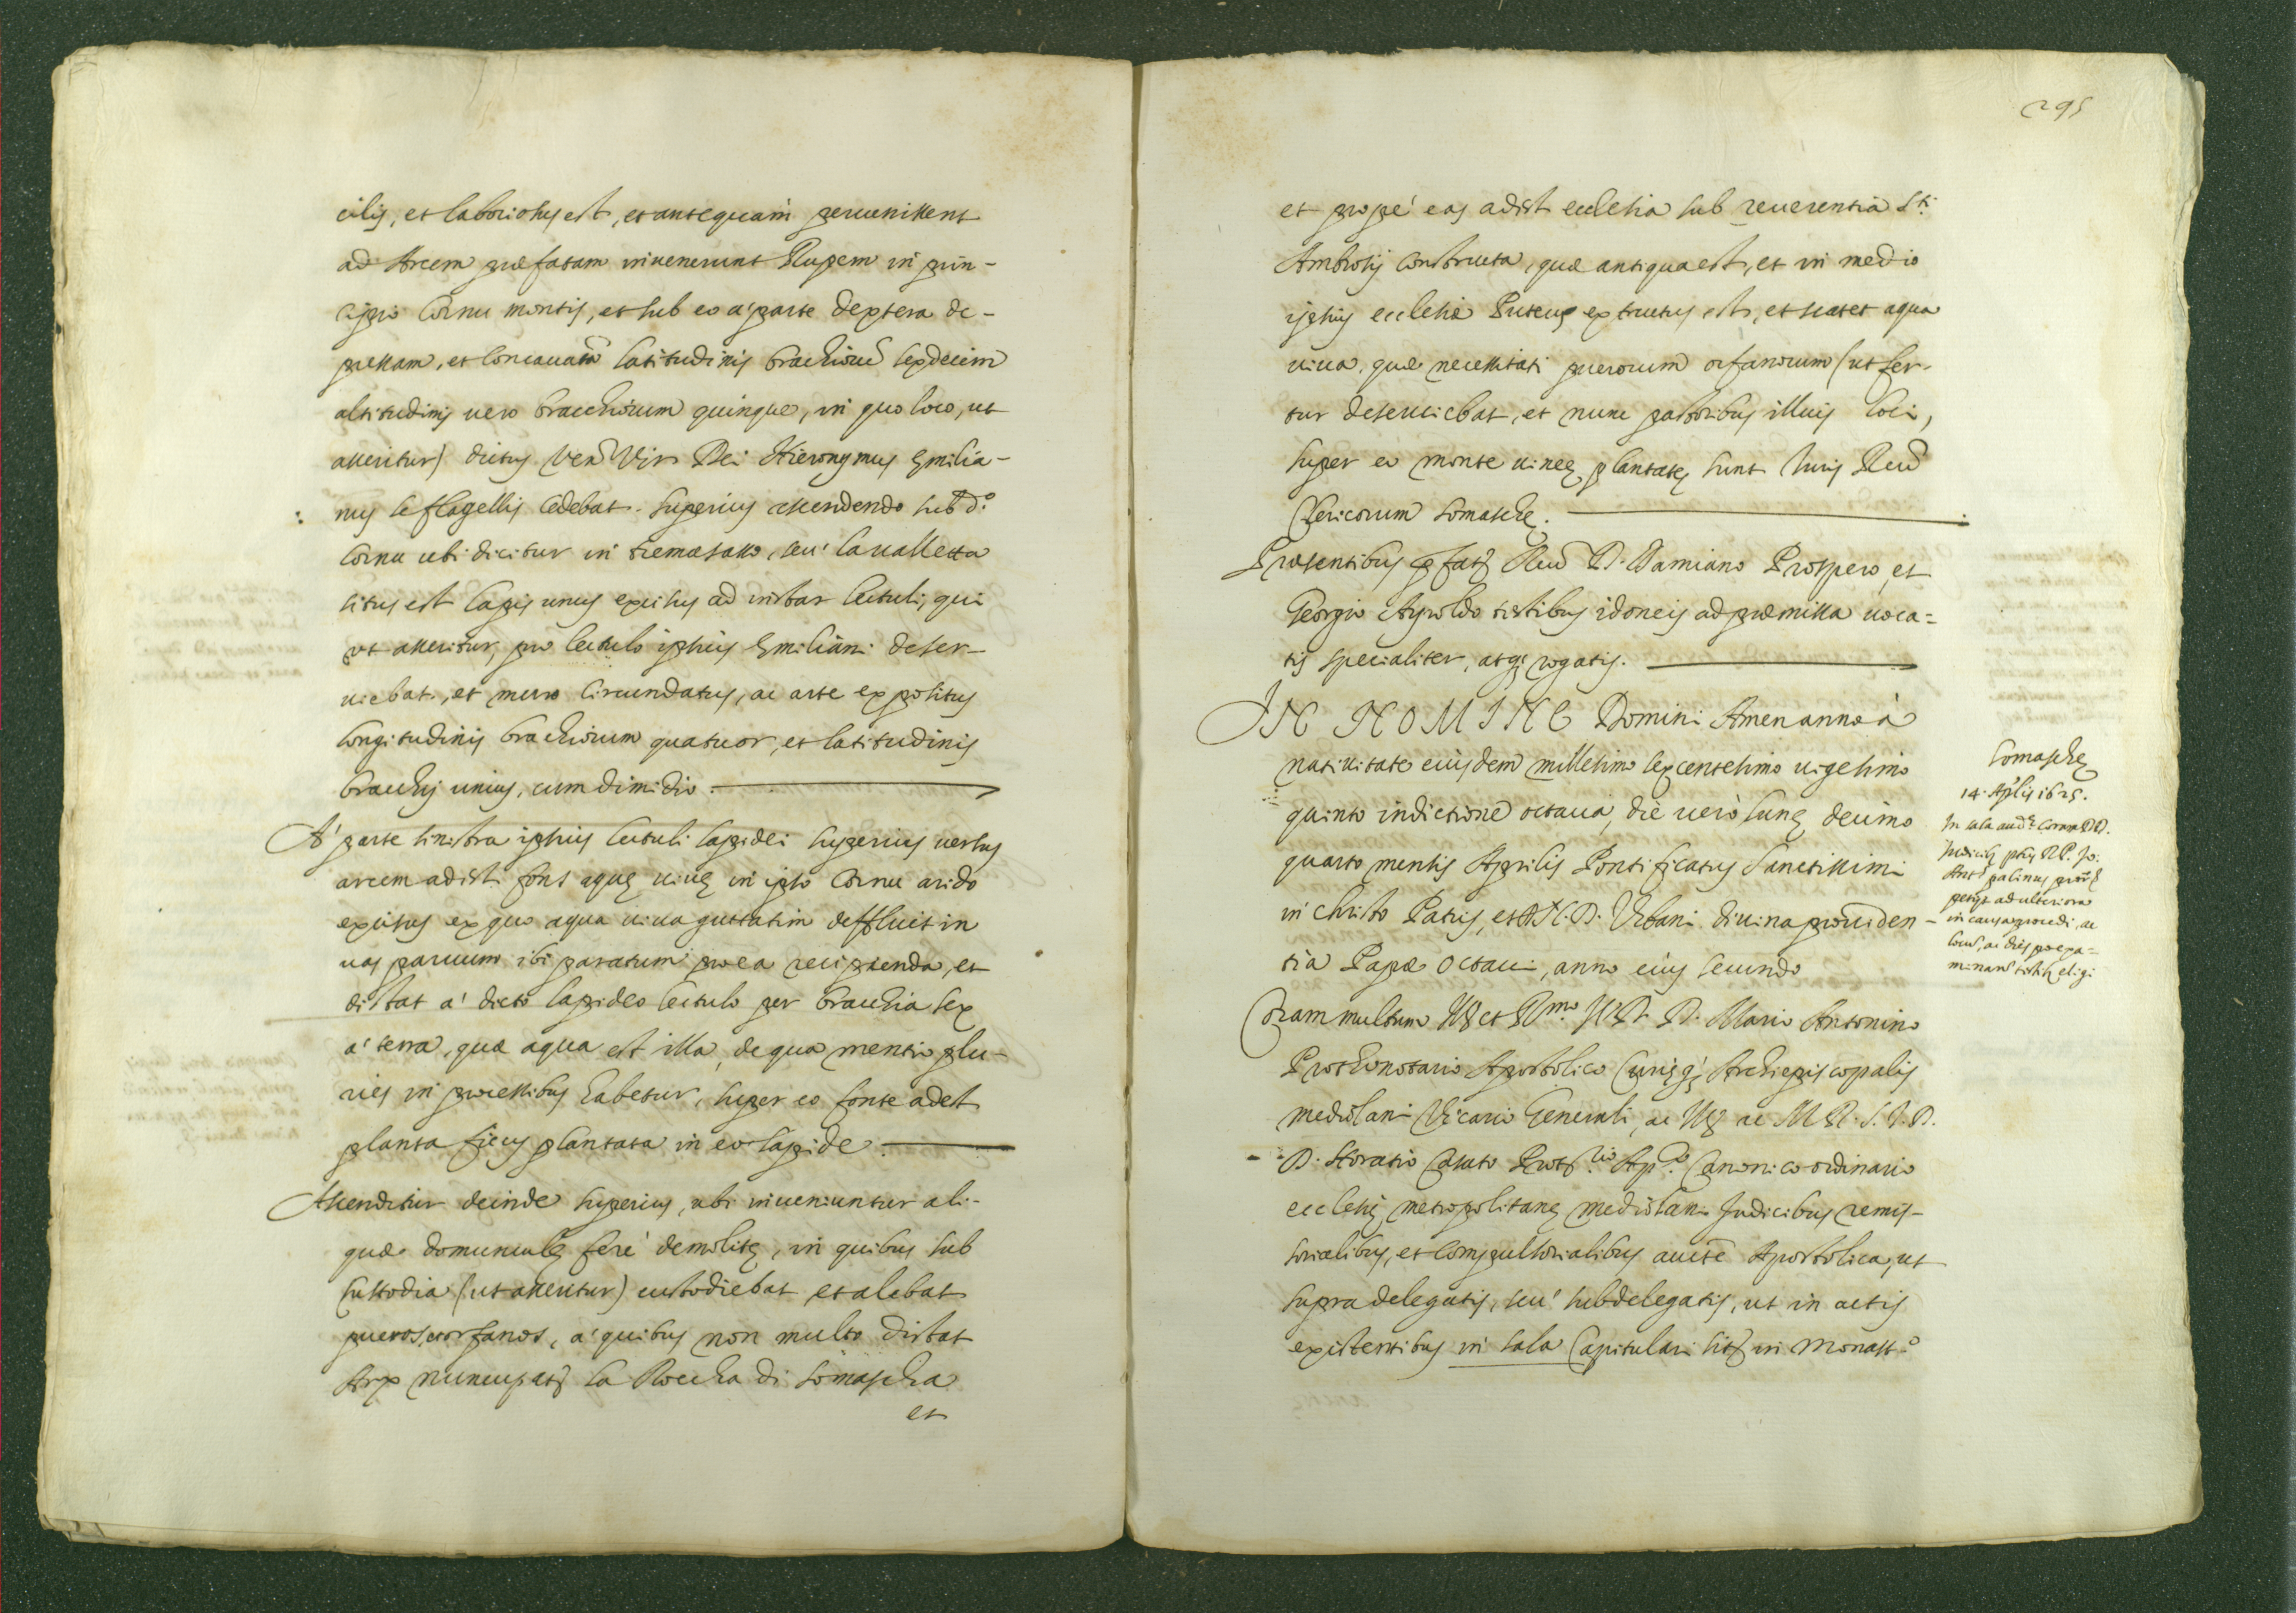 cilis, et laboriosus est, et antequam peruenissent
ad Arcem præfatam inuenerunt Rupem in prin-
cipio Cornu montis, et sub eo a' parte dextera de-
pressam, et concauatã latitudinis brachiorũ sexdecim
altitudinis uero bracchiorum quinque, in quo loco, ut
asseritur) dictus Venˢ Vir Dei Hieronymus Emilia-
nus se flagellis cedebat. superius ascendendo sub d.º
Cornu ubi dicitur in tremasasso, seu' la ualletta
situs est lapis unus excisus ad instar lectuli, qui
ut asseritur, pro lectulo ipsius Emiliani deser-
uiebat, et muro circundatus, ac arte expositus
longitudinis brachiorum quatuor, et latitudinis
bracchij unius, cum dimidio.
A' parte sinistra ipsius lectuli lapidei superius uersus
arcem adest fons aquę uiuę in ipso Cornu arido
excisus ex quo aqua uiua guttatim deffluit in
uas paruum ibi paratum pro ea recipienda, et
distat a' dicto lapideo lectulo per bracchia sex
a' terra, quæ aqua est illa, de qua mentio plu-
ries in processibus habetur, super eo fonte adest
planta ficus plantata in eo lapide.
Ascenditur deinde superius, ubi inueniuntur ali-
quæ domunculę ferè demolitę, in quibus sub
custodia (ut asseritur) custodiebat et alebat
pueros orfanos, a' quibus non multo distat
Arx nuncupatę la Roccha di Somascha
et
295
et propè eas adest ecclesia sub reuerentia S.ti
Ambrosij constructa, quæ antiqua est, et in medio
ipsius ecclesiæ Puteus extructus est, et scatet aqua
uiua, quæ necessitati puerorum orfanorum (ut fer-
tur deseruiebat, et nunc pastoribus illius loci,
super eo monte uineę plantatę sunt Iuris Reu̅
Clericorum Somaschę.
Præsentibus p̅fatę Reu̅ D. Damiano Prospero, et
Georgio Ayroldo testibus idoneis ad præmissa uoca-
tis specialiter, atq; rogatis.
IN NOMINE Domini Amen anno à
natiuitate eiusdem millesimo sexcentesimo uigesimo
quinto indictione octaua, die uerò lunę decimo
quarto mensis Aprilis Pontificatus Sanctissimi
in Christo Patris, et D.N.D. Vrbani diuina prouiden-
tia Papæ Octaui, anno eius secundo
Somaschę
14. Apl̃is 1625.
In sala aud.ę Coram DD.
Iudicibꝰ p̃tis R.P. Jo:
Ant.ˢ palinus pror̃
petijt ad ulteriora
in causa procedi, ac
locũ, ac dies pro exa-
minanđ testibꝰ eligi
Coram multum Ill. et R.mo I.V.D. D. Mario Antonino
Prothonotario Apostolico Curięq; Archiepiscopalis
mediolani Vicario Generali, ac Ill. ac M.R. I.V.D.
D. Horatio Casato Prot.rio Ap.co Canonico ordinario
ecclesię metropolitanę mediolani Iudicibus remis-
sorialibus, et compulsorialibus aucte̅ Apostolica, ut
supra delegatis, seu' subdelegatis, ut in actis
existentibus in sala Capitulari sitę in Monast.º